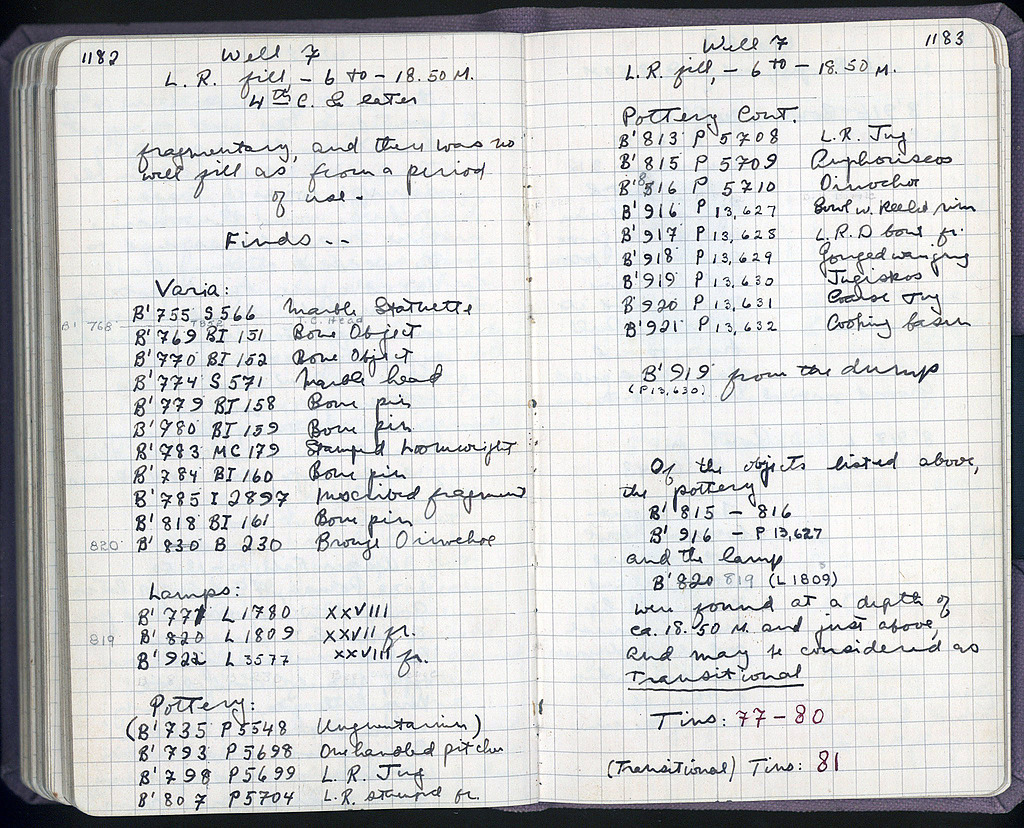 1182
Well 7
L.R. fill - 6 to - 18.50 M.
4th C. & later
fragmentary, and there was no
well fill as from a period
of use.
Finds --
Varia:
B' 755 S 566 Marble Statuette
B' 768 T.C. Head
B' 769 BI 151 Bone Object
B' 770 BI 152 Bone Object
B' 774 S 571 Marble head
B' 779 BI 158 Bone pin
B' 780 BI 159 Bone pin
B' 783 MC 179 Stamped Loomweight
B' 784 BI 160 Bone pin
B' 785 I 2897 Inscribed fragment
B' 818 BI 161 Bone pin
820 B' 830 B 230 Bronze Oinochoe
Lamps:
B' 777 L 1780 XXVIII
819 B' 820 L 1809 XXVII fr.
B' 922 L 3577 XXVIII fr.
Pottery:
(B' 735 P 5548 Unguentarium)
B' 793 P 5698 One handled pitcher
B' 798 P 5699 L.R. Jug
B' 807 P 5704 L.R. stamped fr.
1183
Well 7
L.R. fill, - 6 to - 18.50 M.
Pottery Cont.
B' 813 P 5708 L.R. Jug
B' 815 P 5709 Amphoriskos
B' 816 P 5710 Oinochoe
B' 916 P 13,627 Bowl w. Reeled rim
B' 917 P 13,628 L.R.D bowl fr.
B' 918 P 13,629 Gouged ware jug
B' 919 P 13,630 Jugiskos
B' 920 P 13,631 Coarse Jug
B' 921 P 13,632 Cooking basin
B' 919 from the dump
(P 13,630)
Of the objects listed above,
the pottery
B' 815 - 816
B' 916 - P 13,627
and the lamp
B' 820 819 (L 1809)
were found at a depth of
ca. 18.50 M. and just above,
and may be considered as
Transitional
Tins: 77-80
(Transitional) Tins: 81